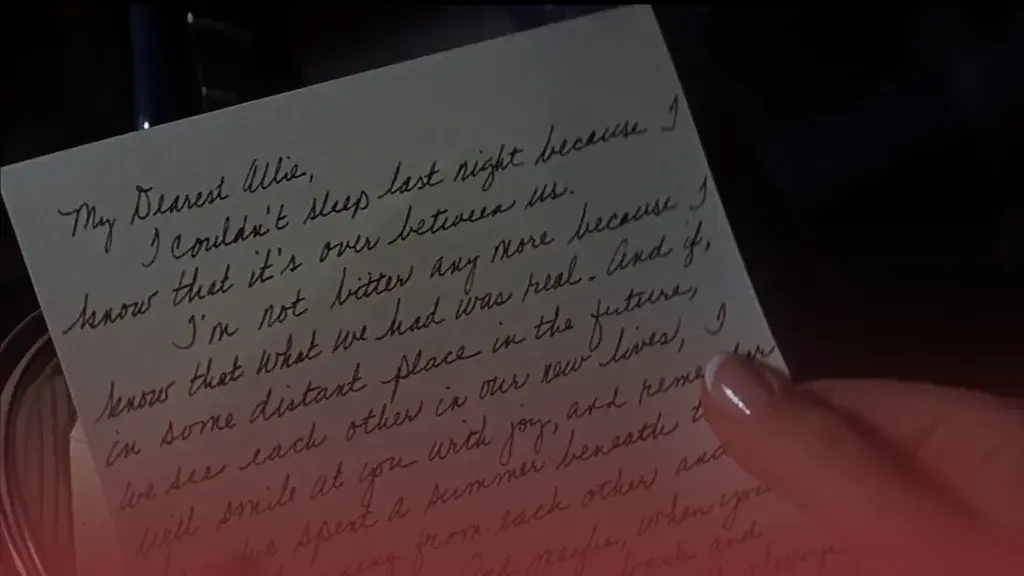 My Dearest Allie,
I couldn't sleep last night because I
know that it's over between us.
I'm not bitter any more because I
know that what we had was real. And if,
in some distant place in the future,
we see each other in our new lives, I
will smile at you with joy, and
we spent a summer beneath
from each other and
maybe, when you
back and